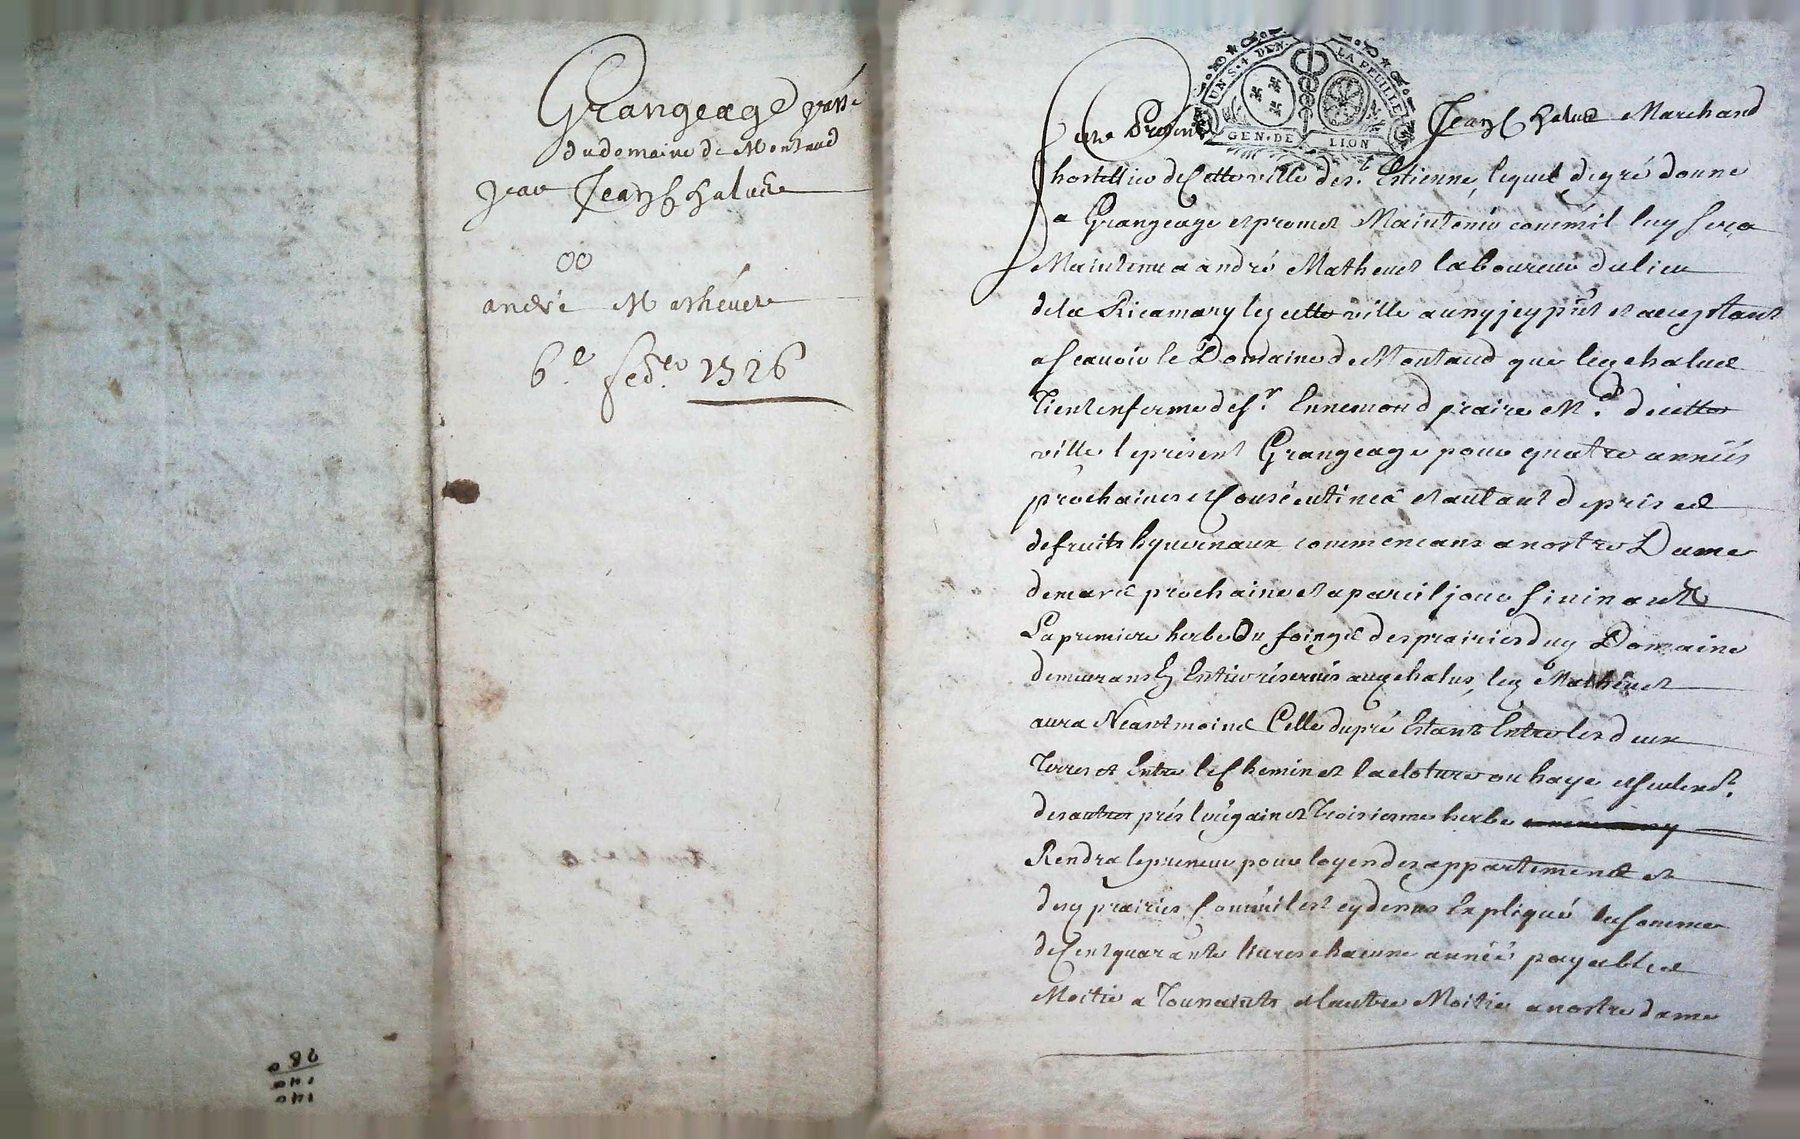 Grangeage passé
du domaine de Montaud
par Jean Chalus
00
andré Mathéuet
6.e fed.re 1726
280
140
140
UN S. 4 DEN. LA FEUILLE
GEN. DE LION
Jean Chalus Marchand
hostellier de Cette ville de st. Estienne, lequel de gré donne
a Grangeage et promet Maintenir comm'il luy sera
Maintenu a andré Matheuet laboureur du lieu
de la Ricamary lez cette ville a ung jcy pnt et acceptant
a scauoir le Domaine de Montaud que led chalus
tient en ferme de sr. Ennemond praire Md. de cette
ville le présent Grangeage pour quatre années
prochaines et Consécutiues et autant de prises
de fruits hyuernaux commencans a nostre Dame
de mars prochaine et a pareil jour fininant
La premiere herbe du foingt des prairies dud Domaine
demeurans En Entier réseruées aud chalus, led Mathéuet
aura Neantmoins Celle du pré Estant Entre les deux
Terres et Entre le Chemin et la cloture ou haye et seulemt.
des autres prés Reugain et troisieme herbe
Rendra le preneur pour loyer des appartements et
desd prairies Comm'il est cy dessus Expliqué la somme
de Cent quarante liures chacune année payables
Moitié a Toussaints et l'autre Moitié a nostre dame